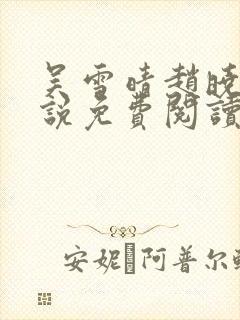 吴雪晴趙曉
說免費閱讀
安妮·阿普尔